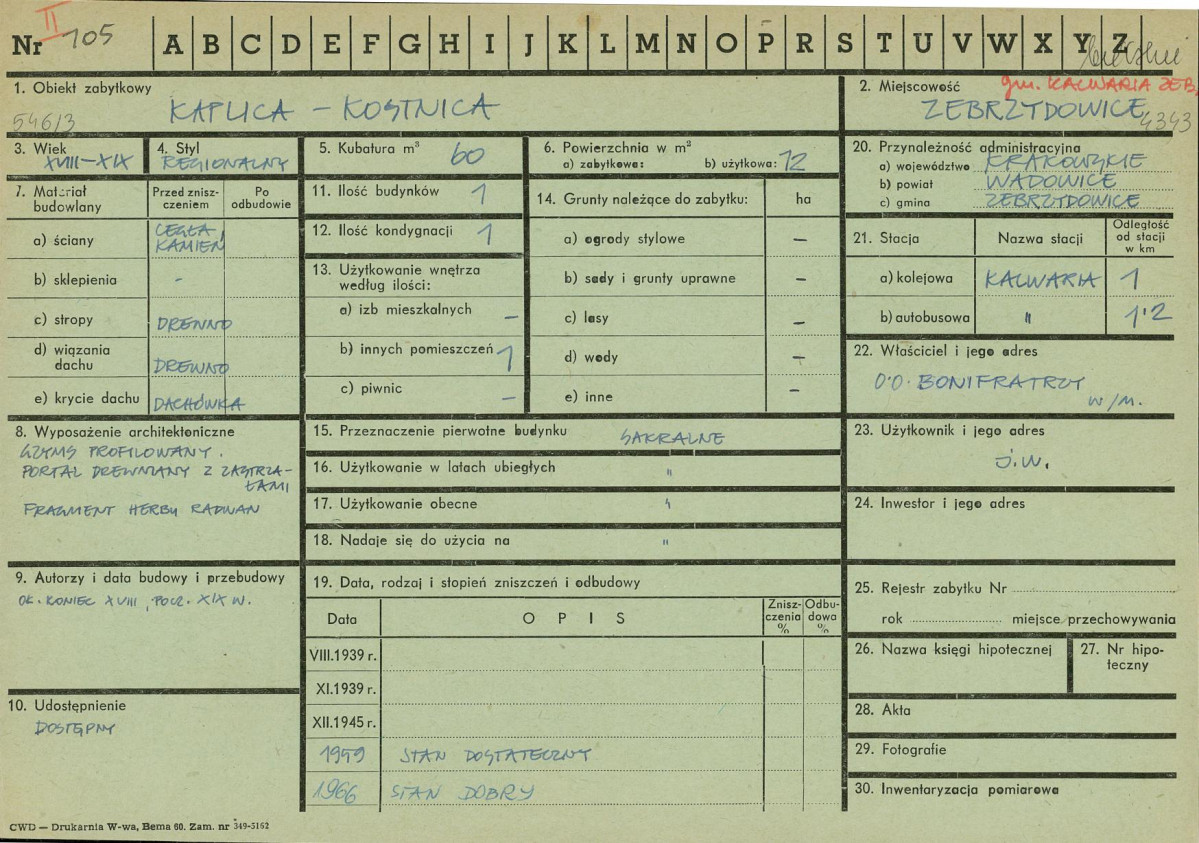 Nr II 105 A B C D E F G H I J K L M N O P R S T U V W X Y Z
1. Obiekt zabytkowy
546/3 KAPLICA – KOSTNICA
2. Miejscowość gm. KALWARIA ZEB.
ZEBRZYDOWICE 4343
3. Wiek
XVIII–XIX
4. Styl
REGIONALNY
5. Kubatura m³ 60
6. Powierzchnia w m²
a) zabytkowa: b) użytkowa: 12
7. Materiał budowlany
Przed znisz-
czeniem
Po
odbudowie
a) ściany CEGŁA,
KAMIEŃ
b) sklepienia -
c) stropy DREWNO
d) wiązania
dachu DREWNO
e) krycie dachu DACHÓWKA
8. Wyposażenie architektoniczne
GZYMS PROFILOWANY.
PORTAL DREWNIANY Z ZASTRZA-
ŁAMI
FRAGMENT HERBU RADWAN
9. Autorzy i data budowy i przebudowy
OK. KONIEC XVIII, POCZ. XIX W.
10. Udostępnienie
DOSTĘPNY
11. Ilość budynków 1
12. Ilość kondygnacji 1
13. Użytkowanie wnętrza
według ilości:
a) izb mieszkalnych –
b) innych pomieszczeń 1
c) piwnic –
14. Grunty należące do zabytku: ha
a) ogrody stylowe –
b) sady i grunty uprawne –
c) lasy –
d) wody –
e) inne –
15. Przeznaczenie pierwotne budynku SAKRALNE
16. Użytkowanie w latach ubiegłych "
17. Użytkowanie obecne "
18. Nadaje się do użycia na "
19. Data, rodzaj i stopień zniszczeń i odbudowy
Data OPIS Znisz-
czenia
% Odbu-
dowa
%
VIII.1939 r.
XI.1939 r.
XII.1945 r.
1959 STAN DOSTATECZNY
1966 STAN DOBRY
20. Przynależność administracyjna
a) województwo KRAKOWSKIE
b) powiat WADOWICE
c) gmina ZEBRZYDOWICE
21. Stacja Nazwa stacji Odległość
od stacji
w km
a) kolejowa KALWARIA 1
b) autobusowa " 1'2
22. Właściciel i jego adres
O.O. BONIFRATRZY
W/M.
23. Użytkownik i jego adres
J.W.
24. Inwestor i jego adres
25. Rejestr zabytku Nr
rok miejsce przechowywania
26. Nazwa księgi hipotecznej
27. Nr hipo-
teczny
28. Akta
29. Fotografie
30. Inwentaryzacja pomiarowa
CWD — Drukarnia W-wa, Bema 60. Zam. nr 349-5162